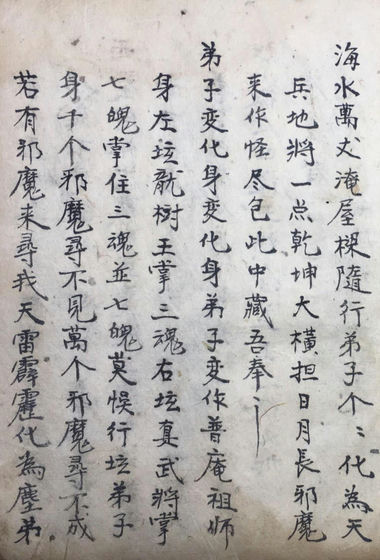 海水萬丈淹屋樑隨行弟子个〻化為天
兵地將一点乾坤大橫担日月長邪魔
來作怪尽包此中藏吾奉〻
弟子变化身变化身弟子变作普庵祖师
身左坛龍樹王掌三魂右坛真武將掌
七魄掌住三魂並七魄莫悞行坛弟子
身千个邪魔尋不見萬个邪魔尋不成
若有邪魔来尋我天雷霹靂化為塵弟